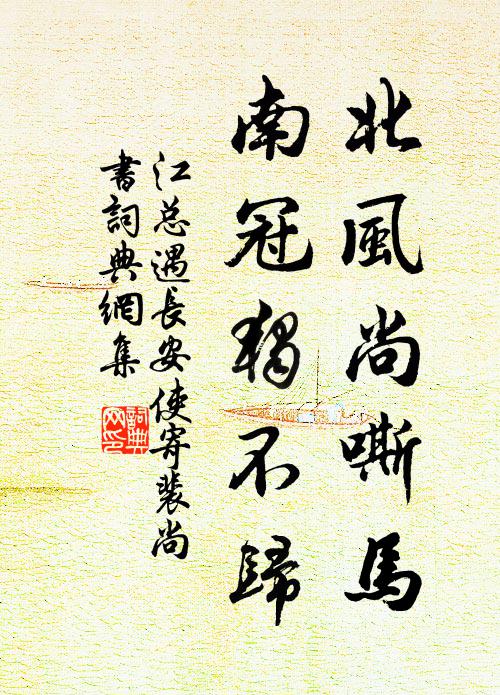 北風尚嘶馬
南冠獨不歸
江总遇長安使寄裴尚
書詞典網集
詞典
网印